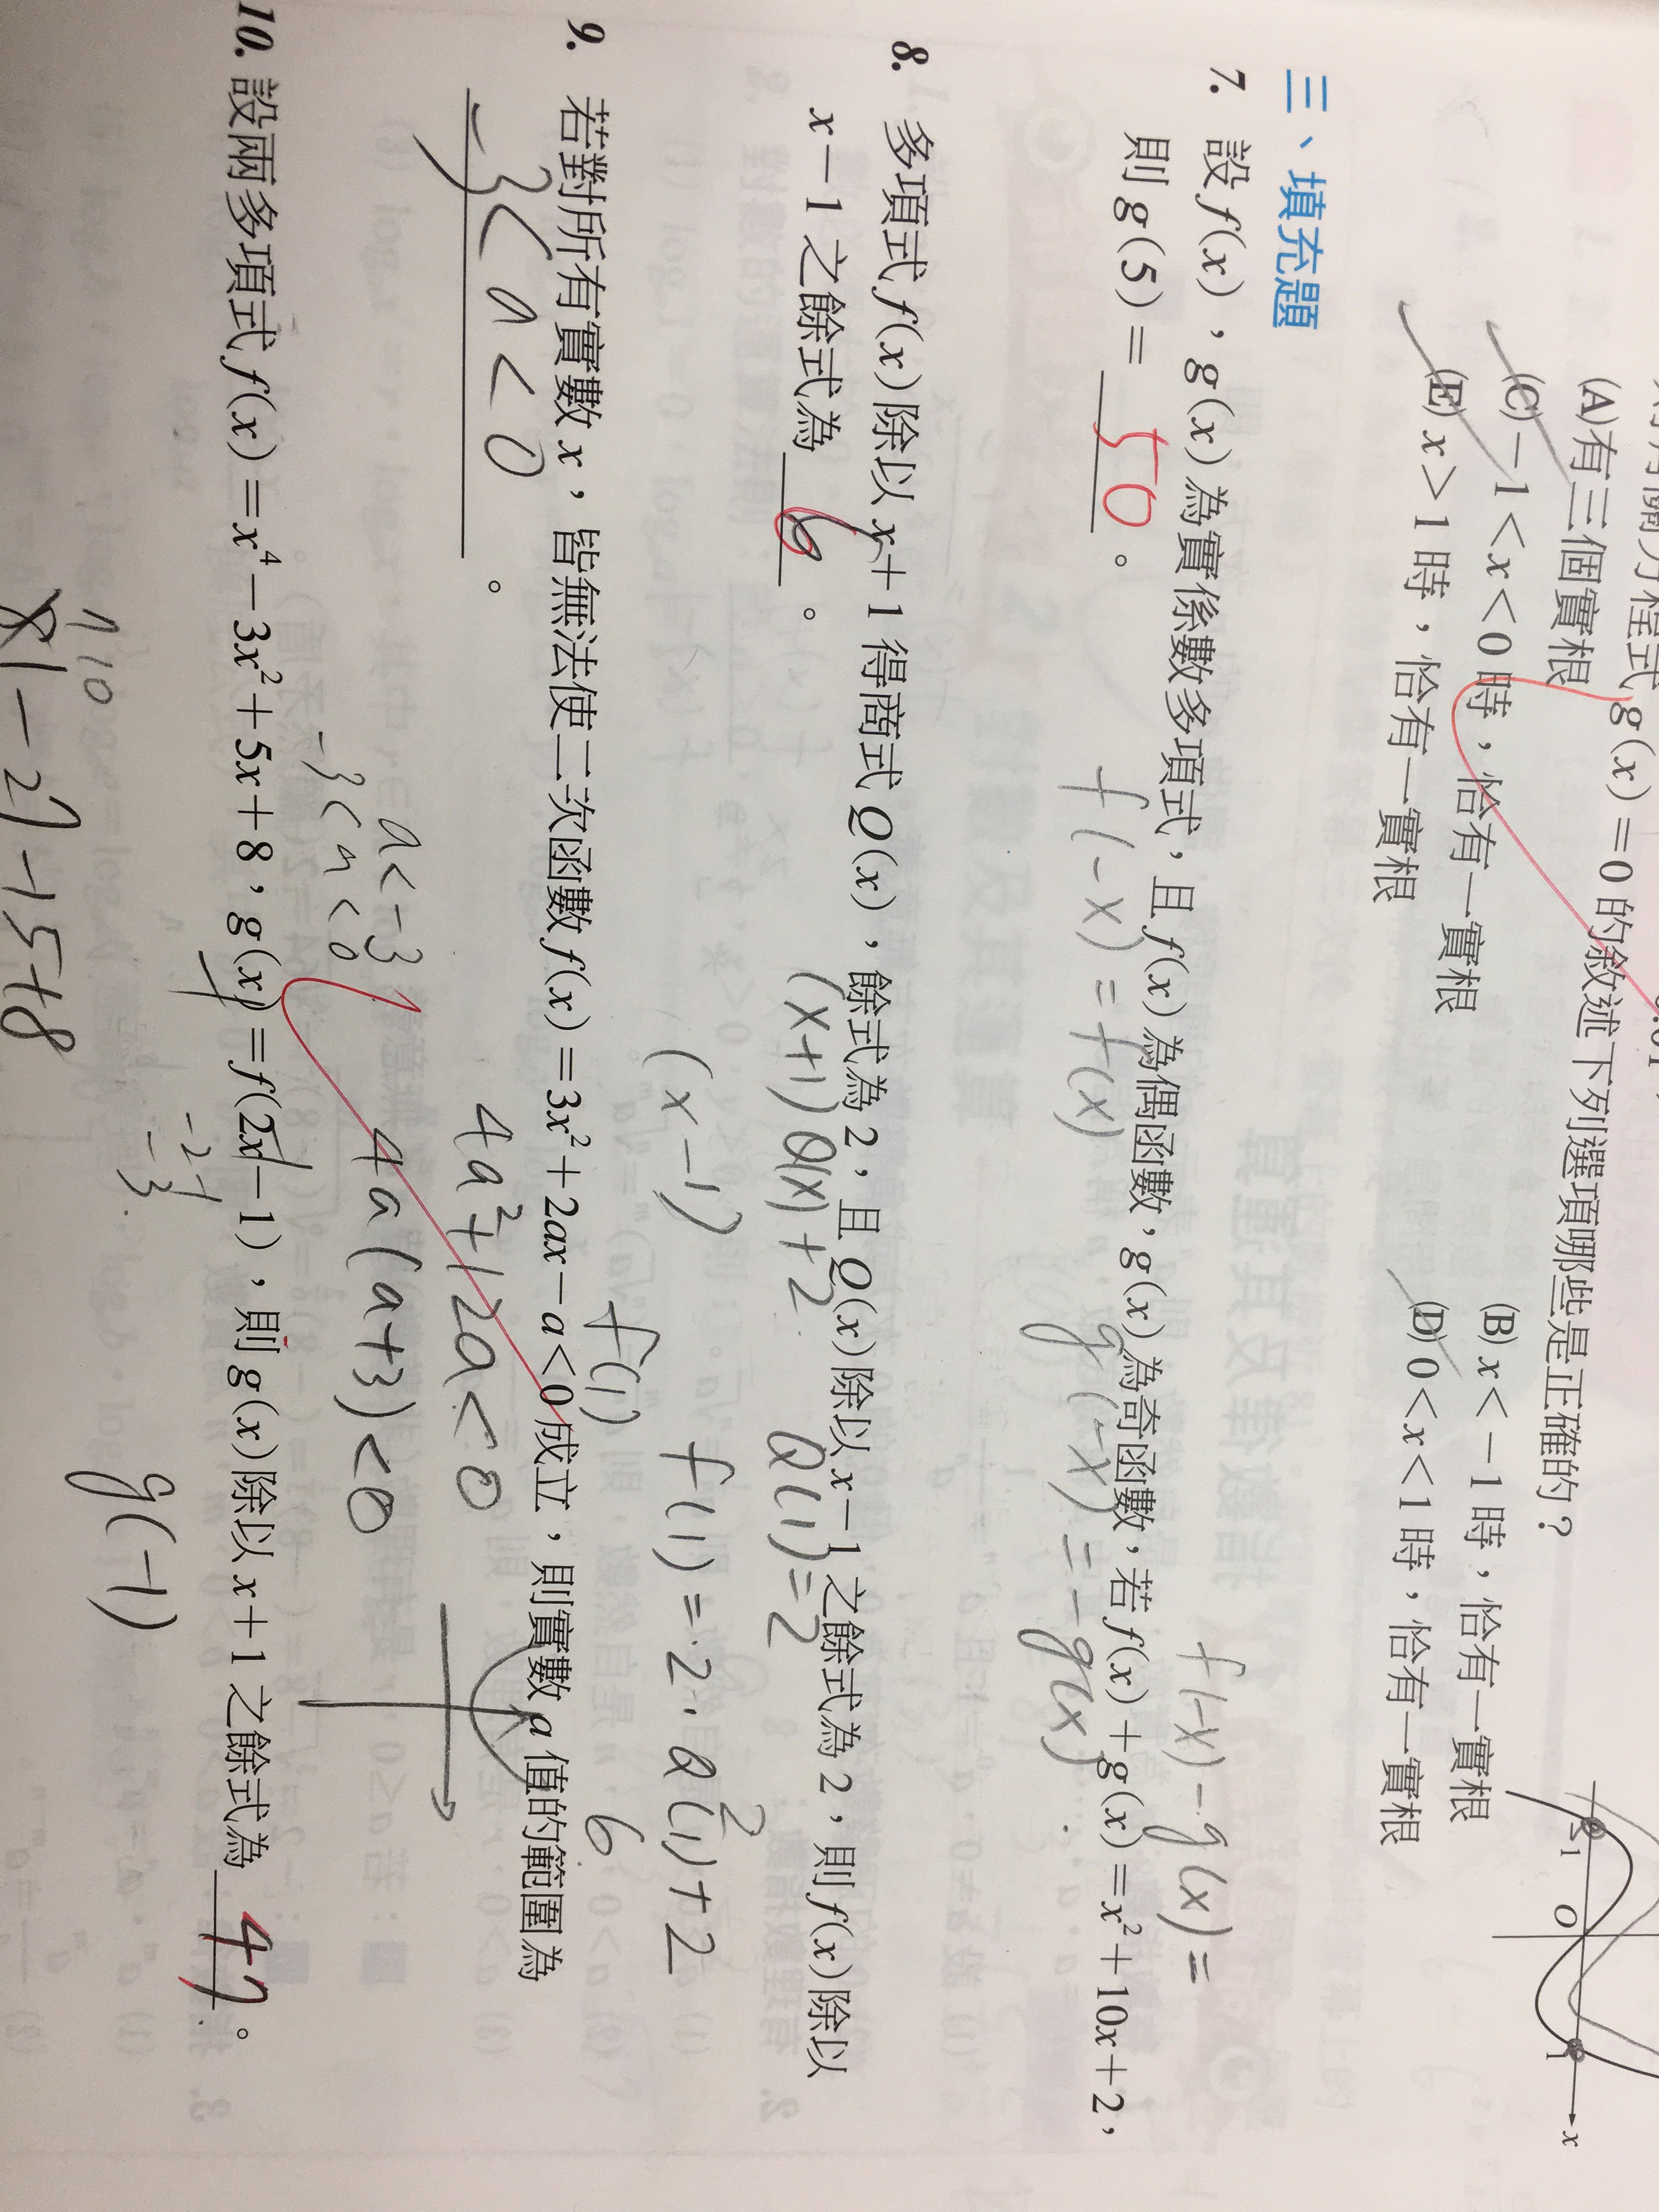 有關方程式 g(x)=0 的敘述下列選項哪些是正確的？
(A)有三個實根 (B) x<-1時，恰有一實根
(C) -1<x<0時，恰有一實根 (D) 0<x<1時，恰有一實根
(E) x>1時，恰有一實根
-1 O 1 x
三、填充題
f(-x)-g(x)=
7. 設 f(x)，g(x)為實係數多項式，且 f(x)為偶函數，g(x)為奇函數，若 f(x)+g(x)=x²+10x+2，
則 g(5)= 50 。
f(-x)=f(x) g(-x)=-g(x)
8. 多項式 f(x)除以 x+1 得商式 Q(x)，餘式為 2，且 Q(x)除以 x-1 之餘式為 2，則 f(x)除以
x-1 之餘式為 6 。
(x+1)Q(x)+2 Q(1)=2
(x-1) f(1)=2·Q(1)+2
2
f(1) 6
9. 若對所有實數 x，皆無法使二次函數 f(x)=3x²+2ax-a<0成立，則實數 a 值的範圍為
-3<a<0 。
4a²+12a<0
a<-3 4a(a+3)<0
-3<a<0
10. 設兩多項式 f(x)=x⁴-3x²+5x+8，g(x)=f(2x-1)，則 g(x)除以 x+1 之餘式為 47 。
g(-1)
81-27-15+8